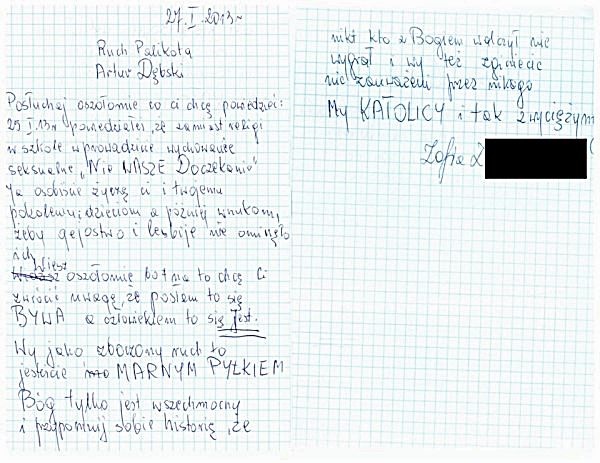 27.I.2013r
Ruch Palikota
Artur Dębski
Posłuchaj oszołomie co ci chcę powiedzieć:
25 I.13r powiedziałeś, że zamiast religi
w szkole wprowadzicie wychowanie
seksualne „Nie WASZE Doczekanie"
Ja osobiście życzę ci i twojemu
pokoleniu; dzieciom a później wnukom,
żeby gejostwo i lesbije nie ominęło
ich
Wiesz oszołomie but na to chcę Ci
zwrócić uwagę, że posłem to się
BYWA a człowiekiem to się Jest.
Wy jako zboczony ruch to
jesteście MARNYM PYŁKIEM
Bóg tylko jest wszechmocny
i przypomnij sobie historię, że
nikt kto z Bogiem walczył nie
wygrał i wy też zginiecie
nie zauważeni przez nikogo
My KATOLICY i tak zwyciężym
Zofia